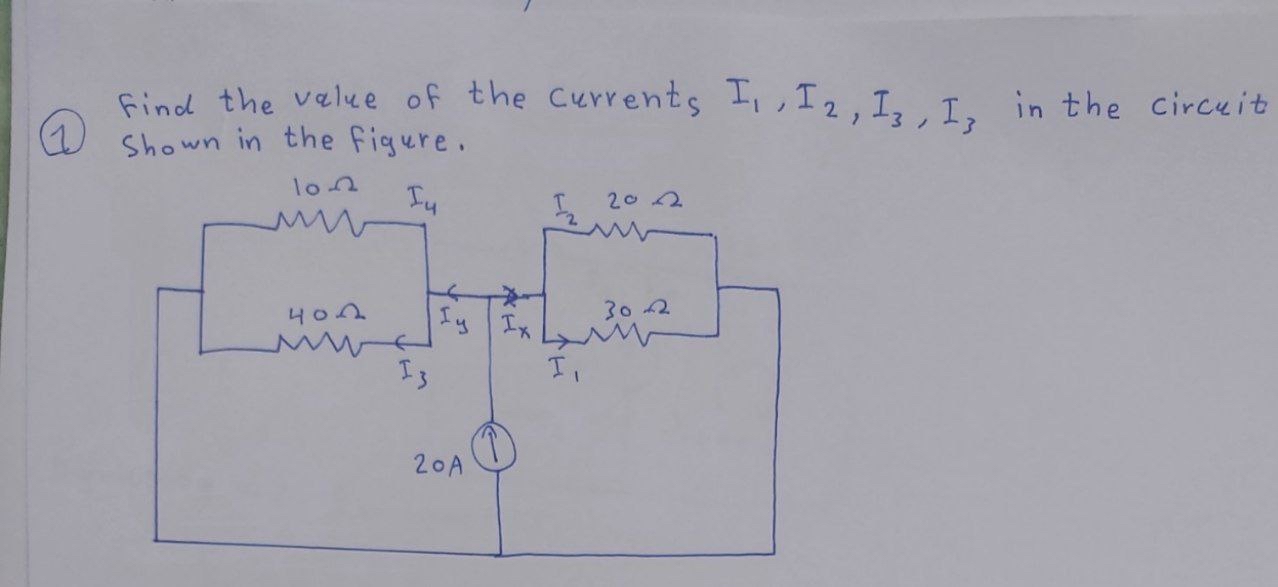 Find the value of the currents I₁, I₂, I₃, I₃ in the circuit
① Shown in the figure.
10Ω I₄ I₂ 20Ω
40Ω Iy Ix 30Ω
I₃ I₁
20A